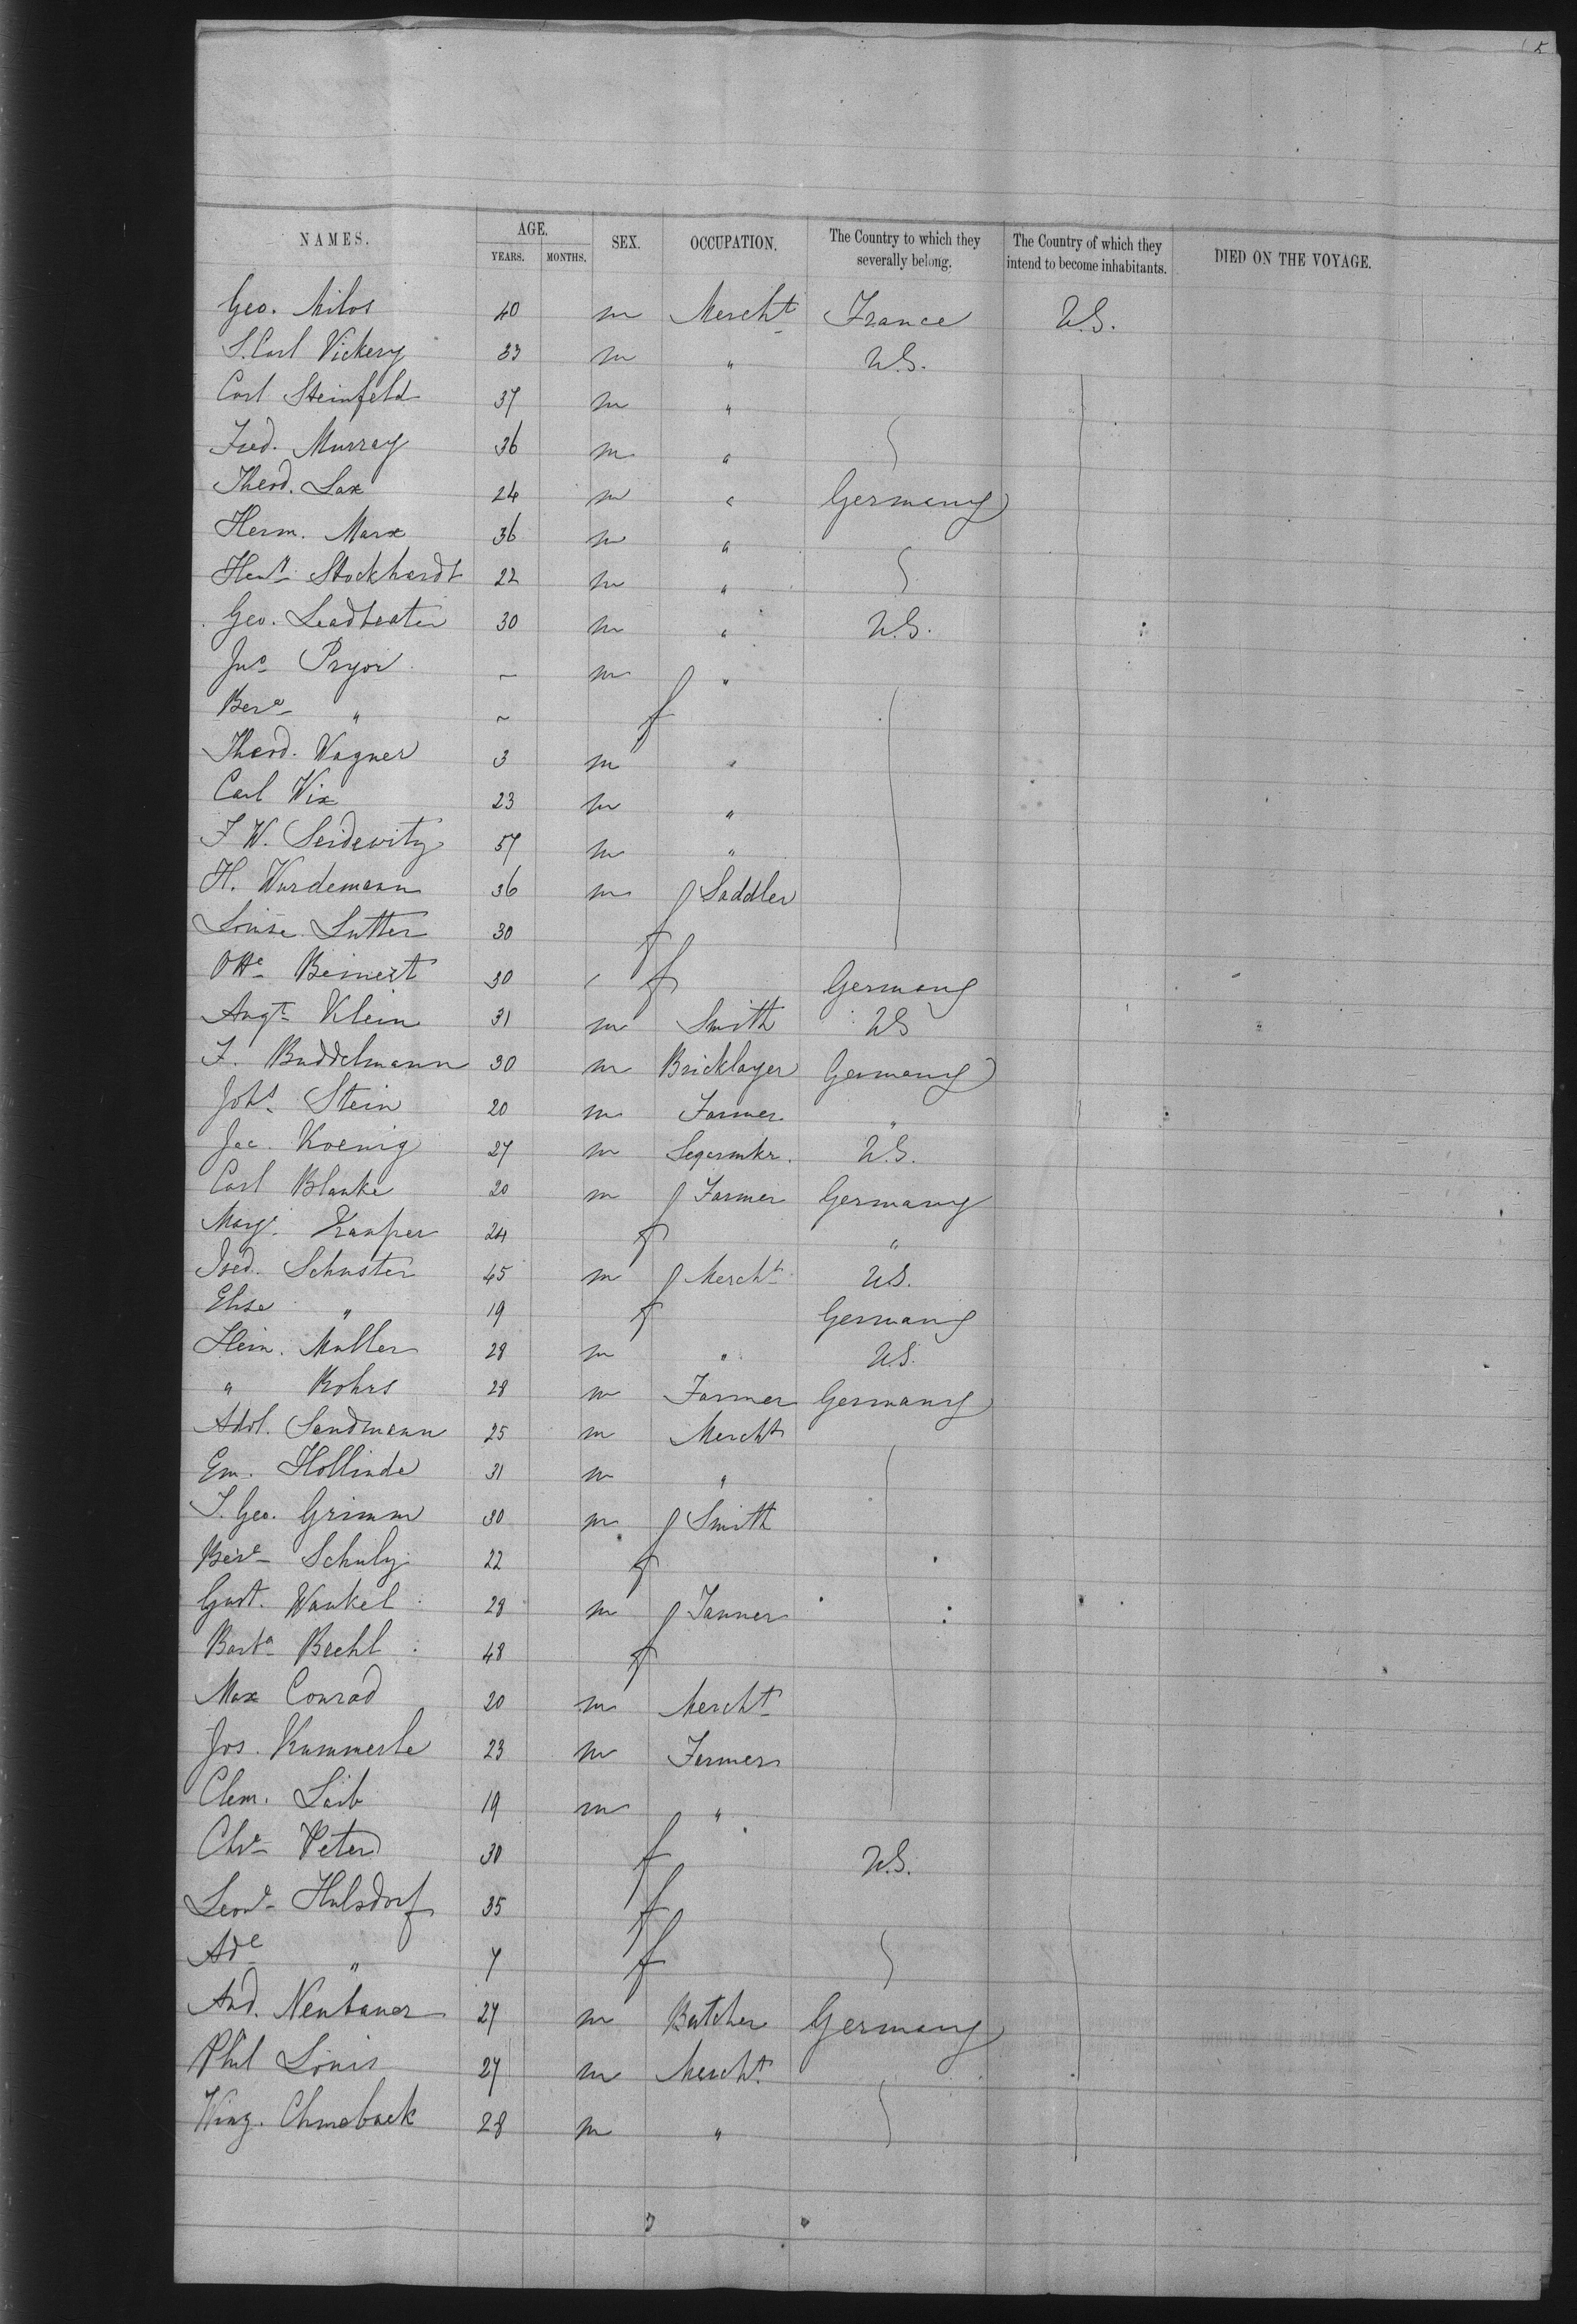 5
NAMES. AGE. YEARS. MONTHS. SEX. OCCUPATION. The Country to which they severally belong. The Country of which they intend to become inhabitants. DIED ON THE VOYAGE.
Geo. Milos 40 m Mercht France U.S.
S. Carl Vickery 33 m " U.S.
Carl Steinfeld 37 m "
Fred. Murray 36 m "
Theod. Lax 24 m " Germany
Herm. Marx 36 m "
Henr. Stockhardt 22 m "
Geo. Leadbeater 30 m " U.S.
Jno Pryor – m "
" ~ f
Theod. Wagner 3 m "
Carl Wix 23 m "
F W. Seidewitz 57 m "
H. Wurdemann 36 m Saddler
Louise Sutter 30 f
Otte Beinert 30 f Germany
Augt Klein 31 m Smith US
F. Buddelmann 30 m Bricklayer Germany
Johs Stein 20 m Farmer "
Jac. Koenig 27 m Segarmkr. U.S.
Carl Blanke 20 m Farmer Germany
Marg. Kamper 24 f "
Fred. Schuster 45 m Mercht U.S.
Elise " 19 f Germany
Hein. Muller 28 m " U.S.
" Rohrs 28 m Farmer Germany
Adol. Sandmann 25 m Mercht
Em. Hollinde 31 m "
J. Geo. Grimm 30 m Smith
Schulz 22 f
Gust. Wankel 28 m Tanner
Barba Brehl 48 f
Max Conrad 20 m Mercht
Jos. Kummerle 23 m Farmer
Clem. Laib 19 m "
Chre Peter 30 f U.S.
Leore Hulsdorf 35 f
Ade " 7 f
And. Neubauer 27 m Butcher Germany
Phil Louis 27 m Mercht
Winz. Chmeback 28 m "